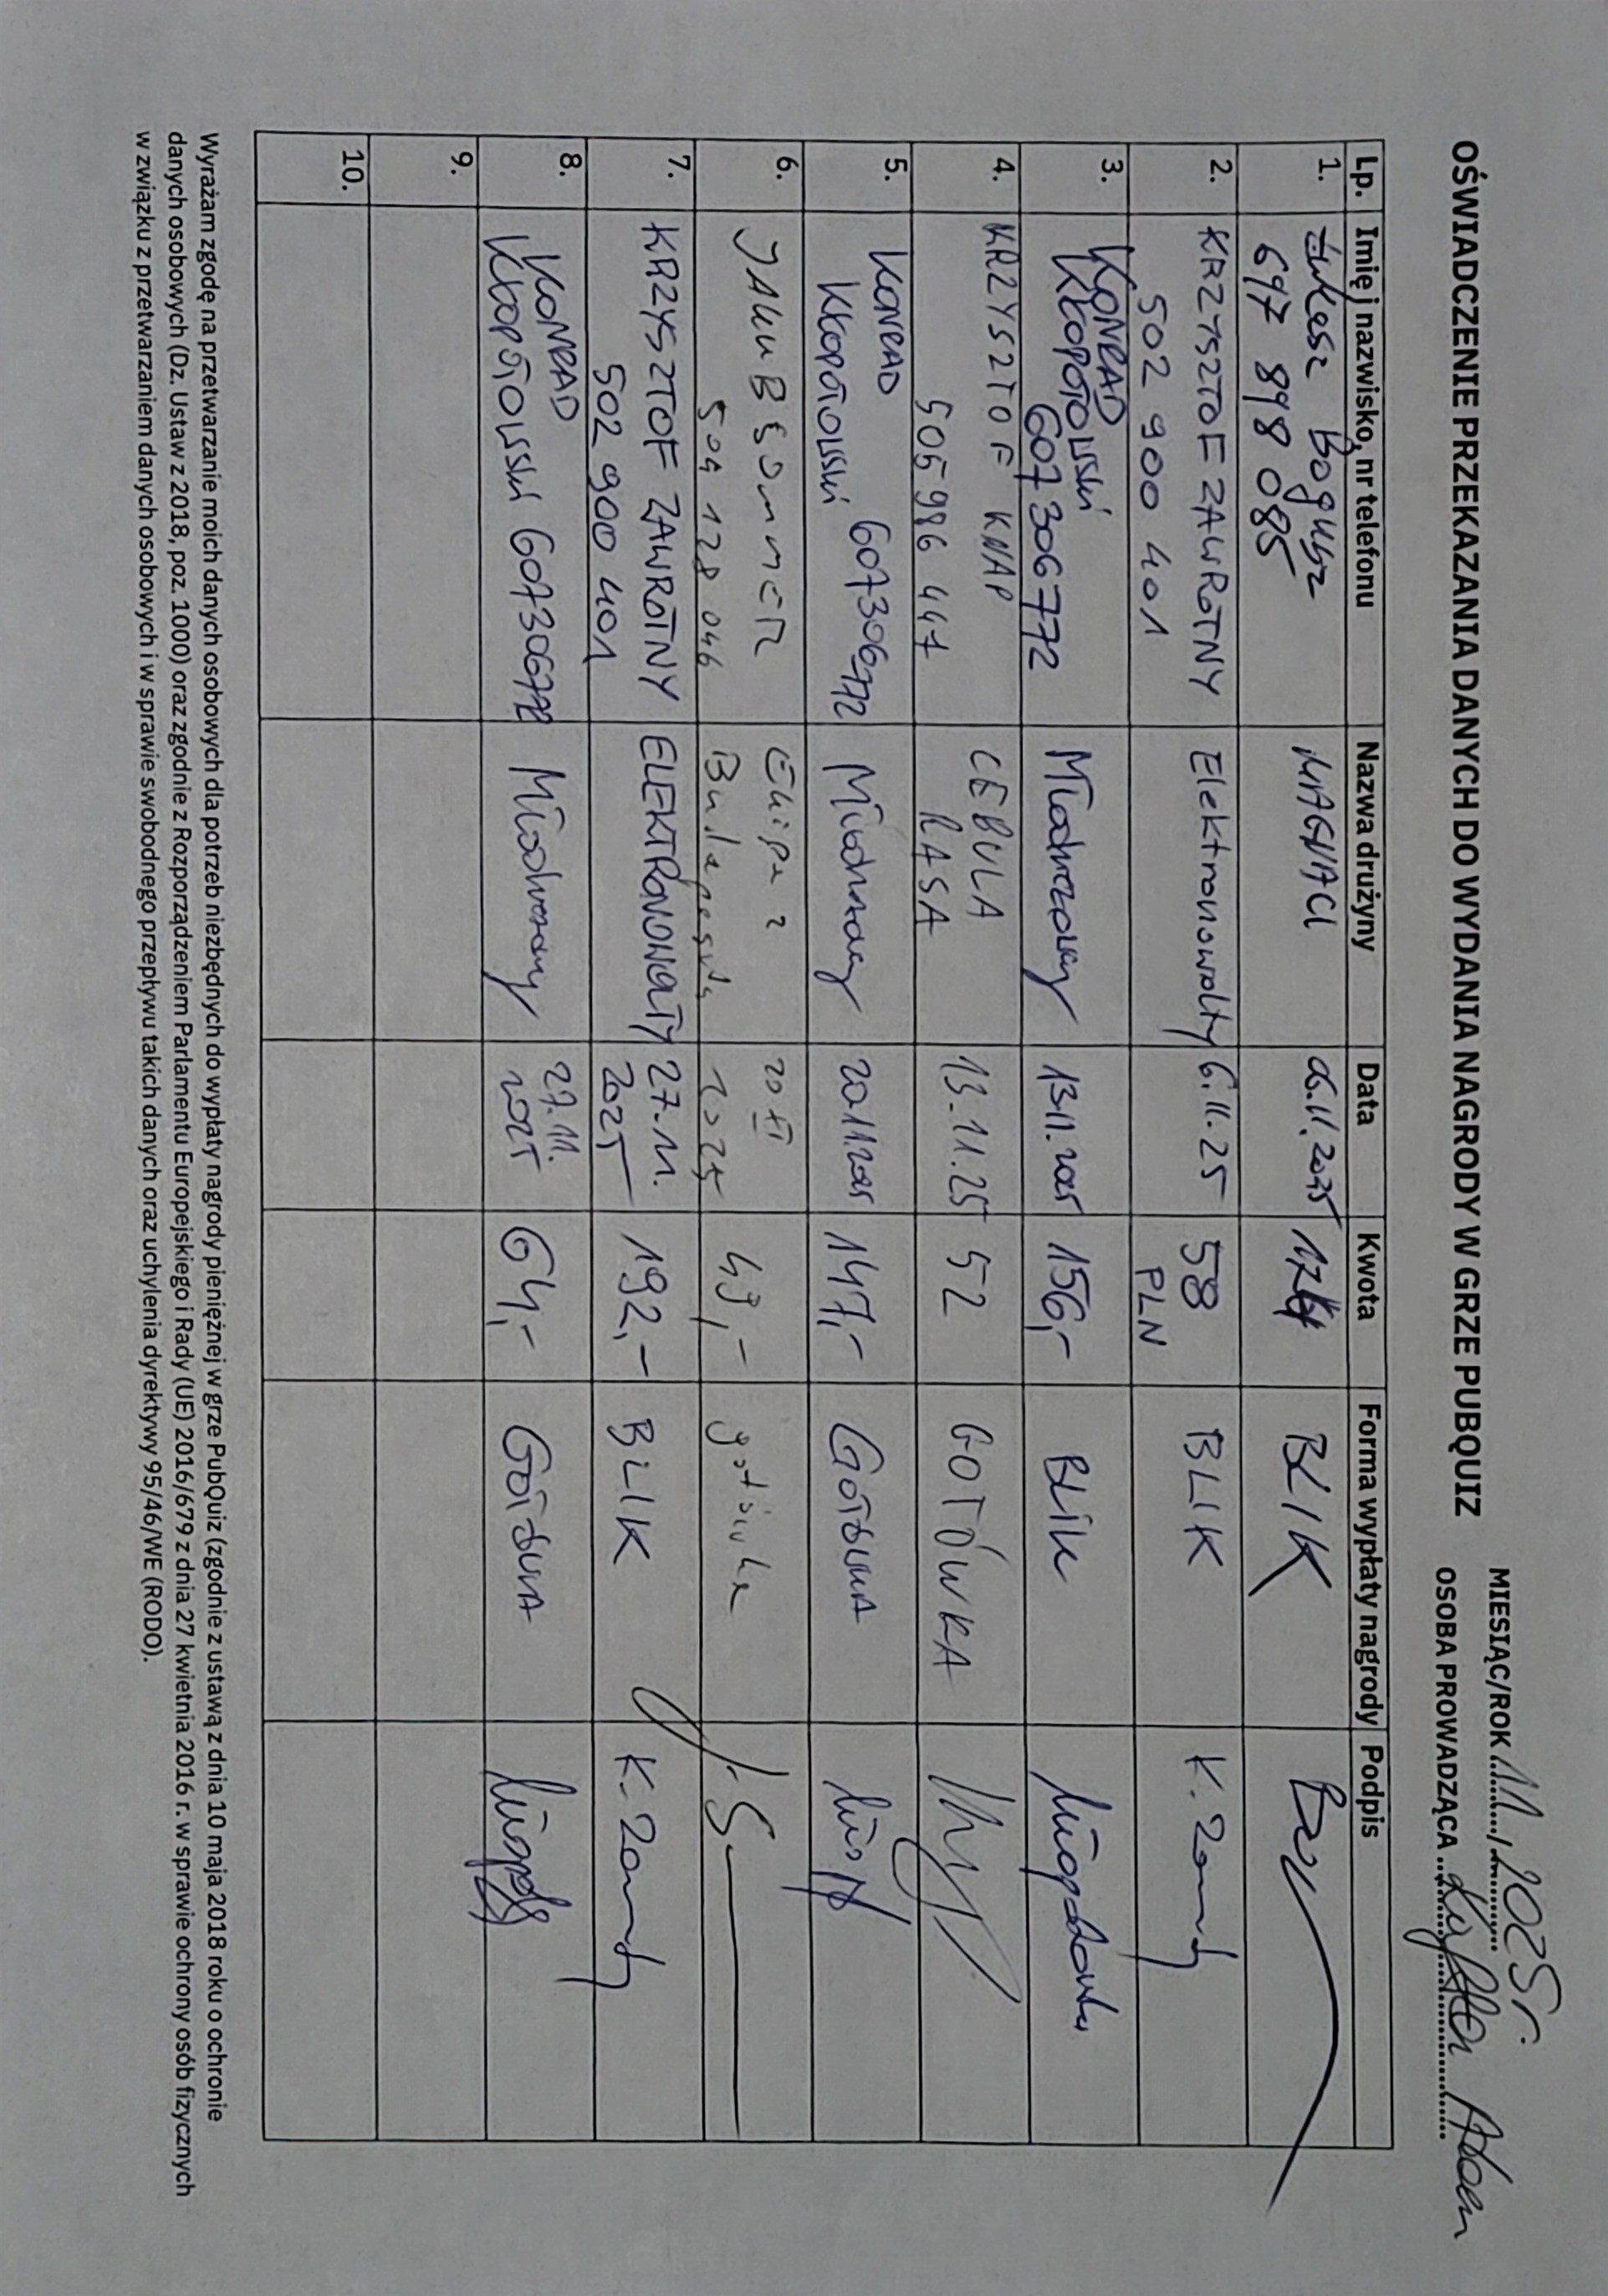 OŚWIADCZENIE PRZEKAZANIA DANYCH DO WYDANIA NAGRODY W GRZE PUBQUIZ
MIESIĄC/ROK 11./2025r
OSOBA PROWADZĄCA Adam
Lp. Imię i nazwisko, nr telefonu Nazwa drużyny Data Kwota Forma wypłaty nagrody Podpis
1. Łukasz Bogusz MAGNACI 06.11.2025 BLIK
697 898 085
2. KRZYSZTOF ZAWROTNY Elektronowolty 6.11.25 58 BLIK K. Zawrotny
502 900 401 PLN
3. KONRAD KŁOPOTOWSKI Miodrzewy 13.11.2025 156,- BLIK
607306772
4. KRZYSZTOF KNAP CEBULA 13.11.25 52 GOTÓWKA
505 986 447 RASA
5. KONRAD 607306772 20.11.2025 147,- GOTÓWKA
KŁOPOTOWSKI
6. JAKUB SOMMER Ekipa z 20 XI 49,- gotówka J. S
504 128 046 Budapesztu 2025
7. KRZYSZTOF ZAWROTNY ELEKTRONOWOLTY 27.11. 192,- BLIK K. Zawrotny
502 900 401 2025
8. KONRAD 27.11. 64,- GOTÓWKA
KŁOPOTOWSKI 607306772 2025
9.
10.
Wyrażam zgodę na przetwarzanie moich danych osobowych dla potrzeb niezbędnych do wypłaty nagrody pieniężnej w grze PubQuiz (zgodnie z ustawą z dnia 10 maja 2018 roku o ochronie
danych osobowych (Dz. Ustaw z 2018, poz. 1000) oraz zgodnie z Rozporządzeniem Parlamentu Europejskiego i Rady (UE) 2016/679 z dnia 27 kwietnia 2016 r. w sprawie ochrony osób fizycznych
w związku z przetwarzaniem danych osobowych i w sprawie swobodnego przepływu takich danych oraz uchylenia dyrektywy 95/46/WE (RODO).